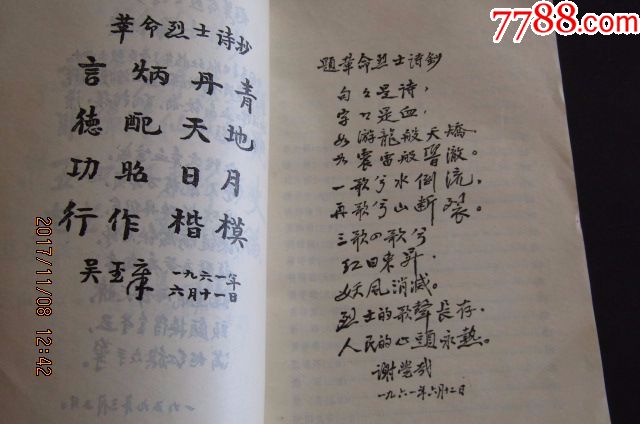 7788.com
革命烈士诗抄
言炳丹青
德配天地
功昭日月
行作楷模
吴玉章
一九六一年
六月十一日
題革命烈士诗鈔
句々是诗，
字々是血，
如游龍般天矯，
如震雷般響澈。
一歌兮水倒流，
再歌兮山断裂。
三歌四歌兮
红日東昇，
妖风消滅。
烈士的歌聲長存，
人民的心頭永熱。
谢觉哉
一九六一年六月十二日
2017/11/08 12:42
一九五九年三月二日。